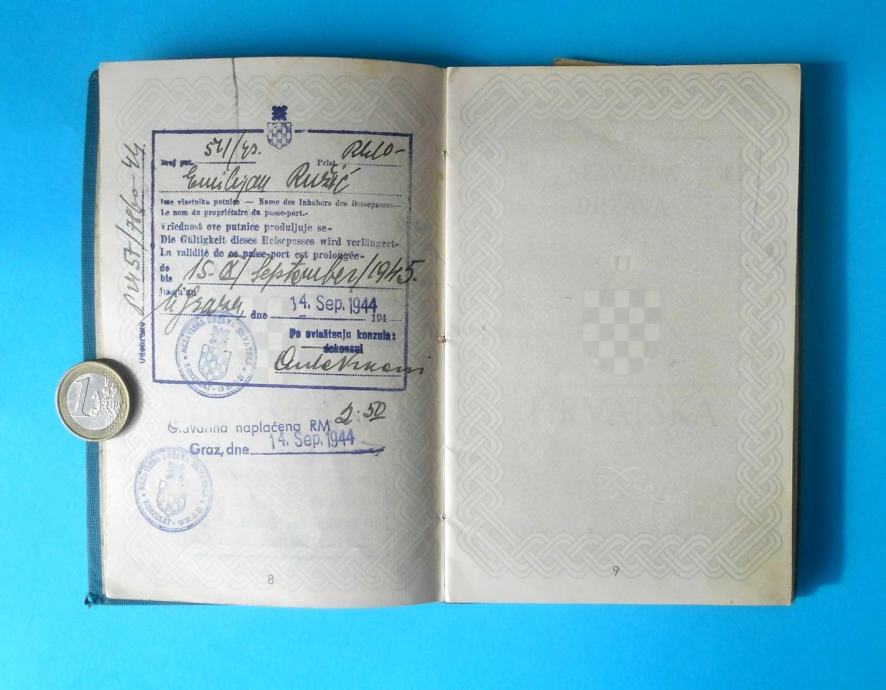 Broj put. 571/43. Prist.
Emilijan Ružić
Ime vlastnika putnice — Name des Inhabers des Reisepasses—
Le nom du propriétaire du passe-port.-
Vriednost ove putnice produljuje se-
Die Gültigkeit dieses Reisepasses wird verlängert-
La validité de ce passe-port est prolongée-
do
bis 15-IX/September/1945.
jusqu'au
dne 14. Sep. 1944 194
Po ovlaštenju konzula:
dokonzul
NEZAVISNA DRŽAVA HRVATSKA
KONZULAT - GRAZ
naplaćena RM 2.50
Graz, dne 14. Sep. 1944
NEZAVISNA DRŽAVA HRVATSKA
KONZULAT - GRAZ
8
9
1 EURO